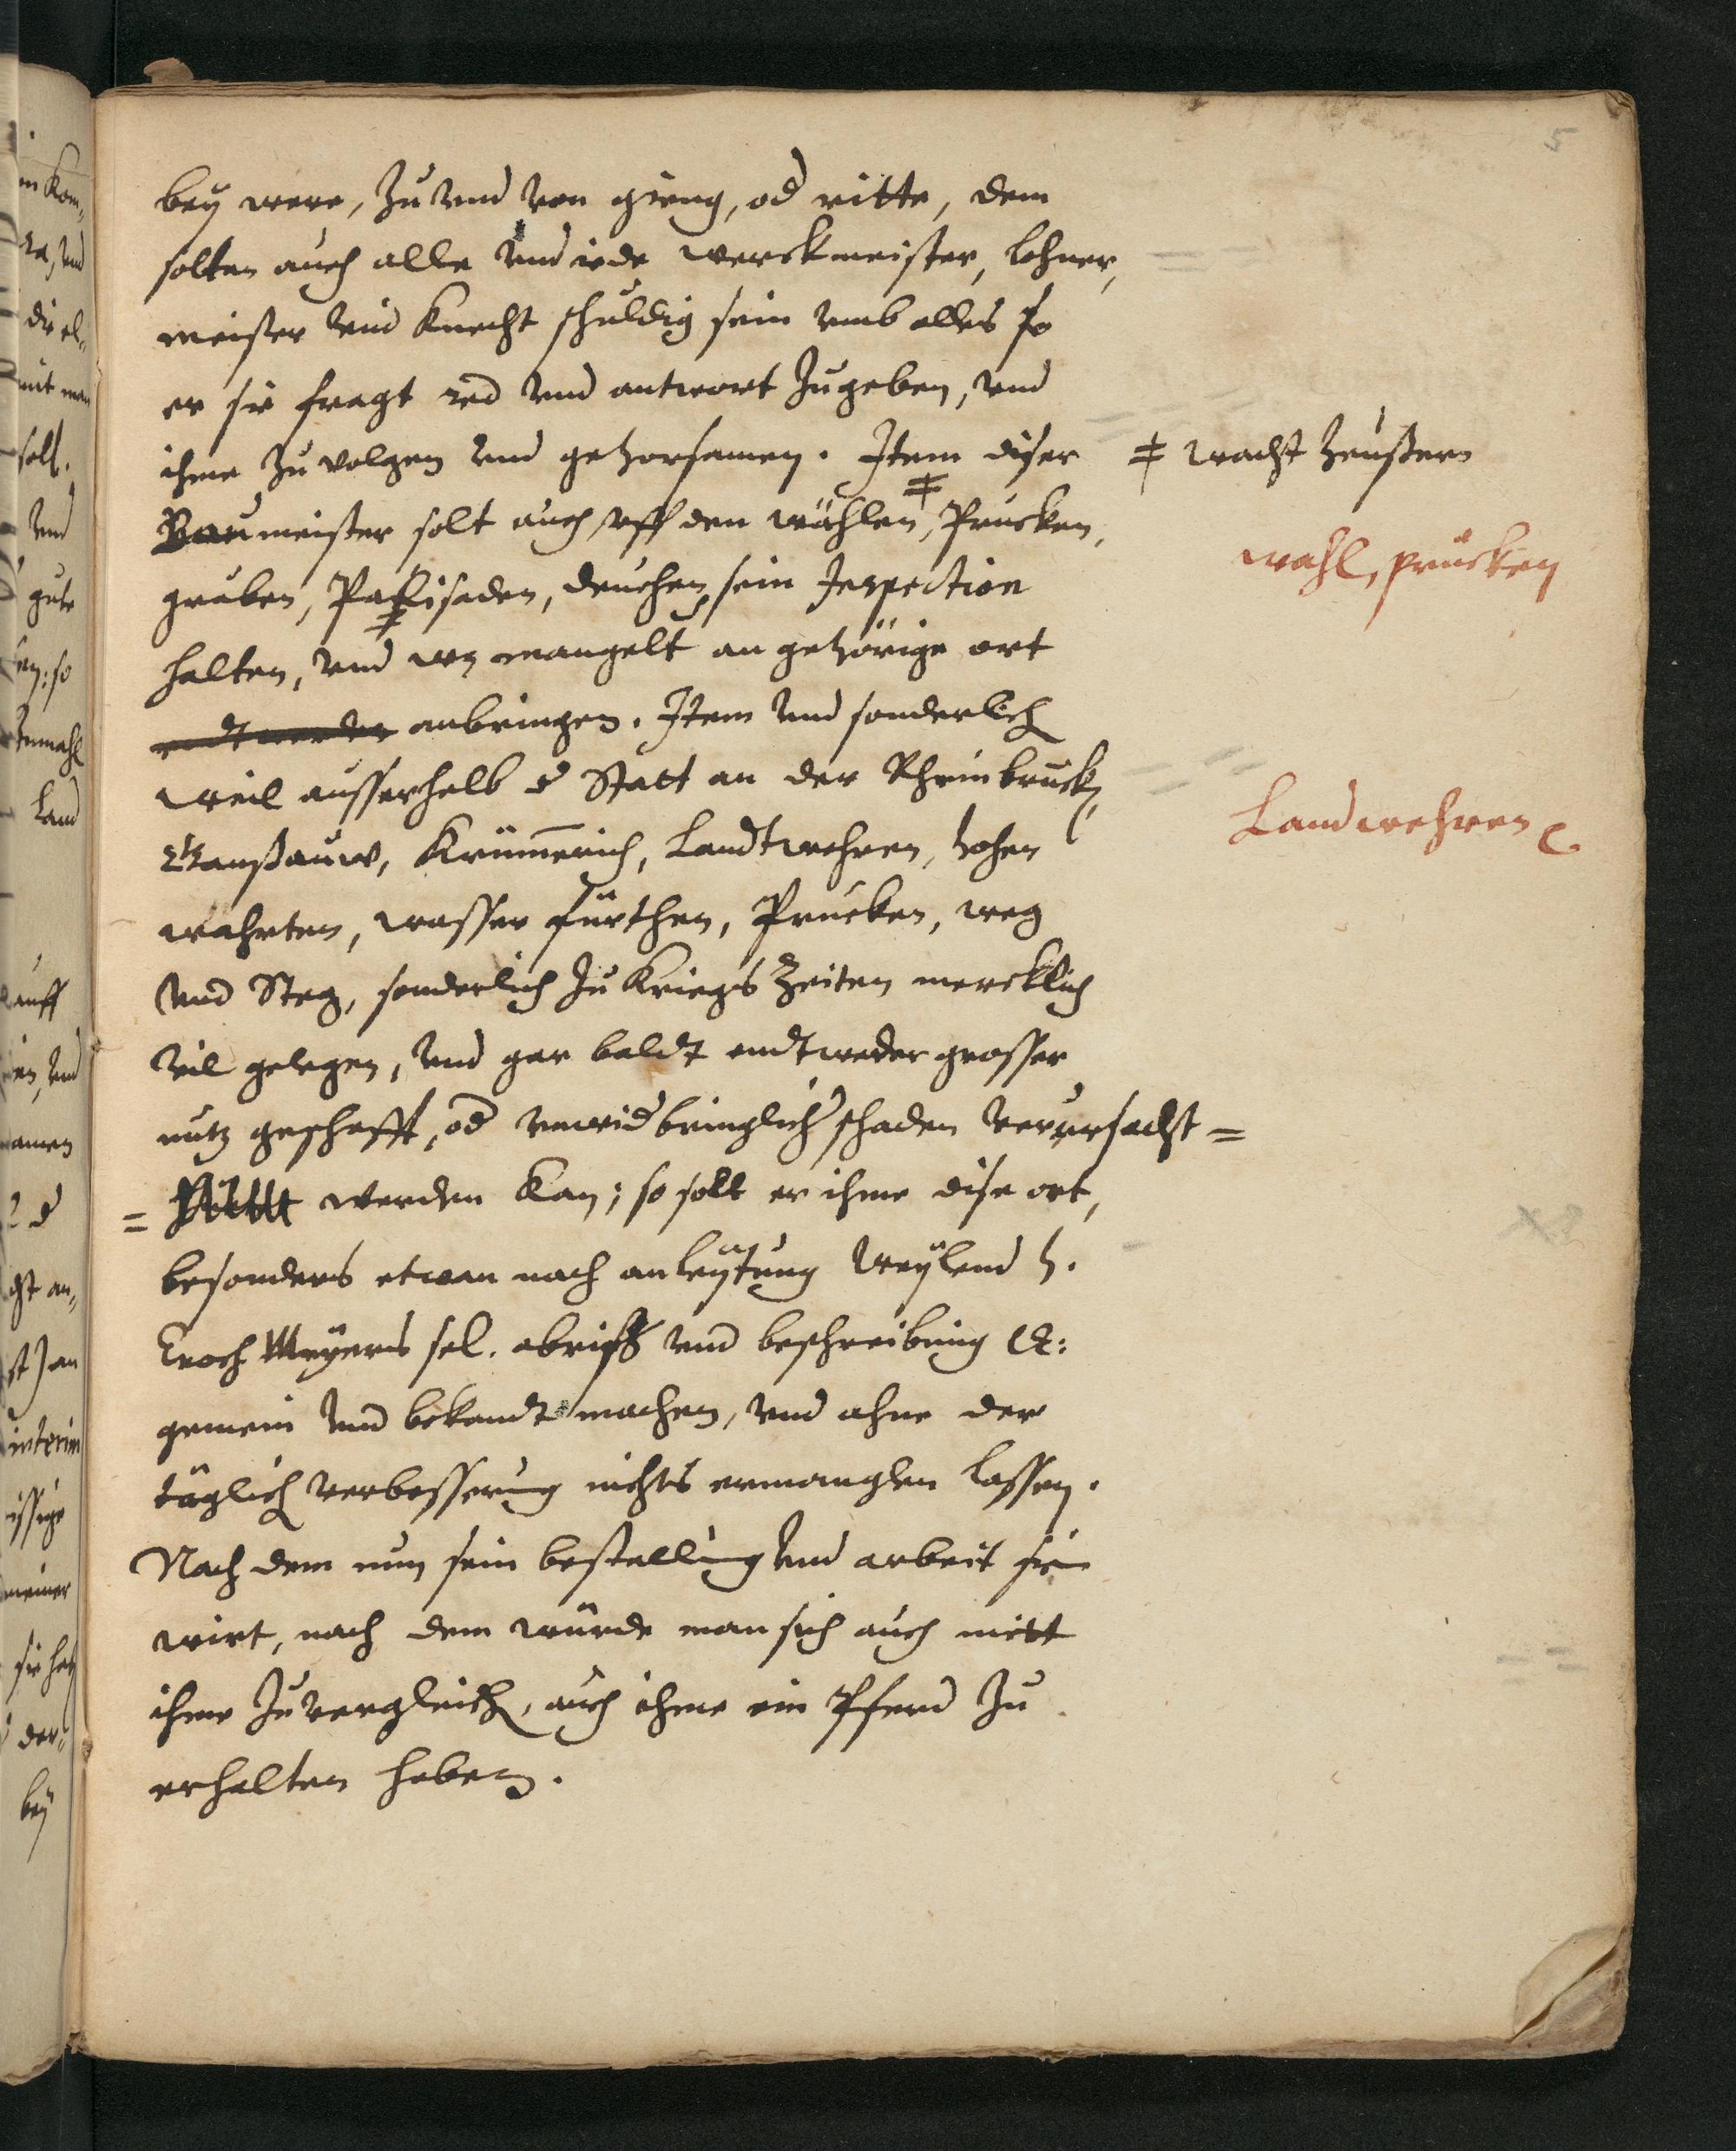 5
bey were, zu vnd von gieng, od ritte, dem
solten auch alle vnd iede werckmeister, lohner,
meister vnd Knecht schuldig sein vmb alles so
er sie fragt red vnd antwort zugeben, vnd
ihme zu volgen vnd gehorsamen. Item diser
Baumeister solt auch vff den wählen ǂ, Prucken,
graben, Pallisaden, deuchen sein Inspection
halten, vnd wz mangelt an gehörige ort
endtweder anbringen. Item vnd sonderlich
weil ausserhalb d Statt an der Rheinbruck,
Ganßauw, Krümmerich, Landtwehren, hohen
wahrten, wasser fürthen, Prucken, weg
vnd Steg, sonderlich zu Kriegs Zeiten mercklich
vil gelegen, vnd gar baldt endtweder grosser
nutz geschafft, od vnwidbringlich schaden verursacht =
= werden kan; so solt er ihme dise ort,
besonders etwan nach anleÿtung weÿlend h.
Enoch Meÿers sel. abriss vnd beschreibung &:
gemein vnd bekandt machen, vnd ahne der
täglich verbesserung nichts ermanglen lassen.
Nach dem nun sein bestallung vnd arbeit sein
wirt, nach dem würde man sich auch mitt
ihme zu vergleich, auch ihme ein Pferd zu
erhalten haben.
ǂ wacht heüßern
wahl, prucken
Landwehren &.